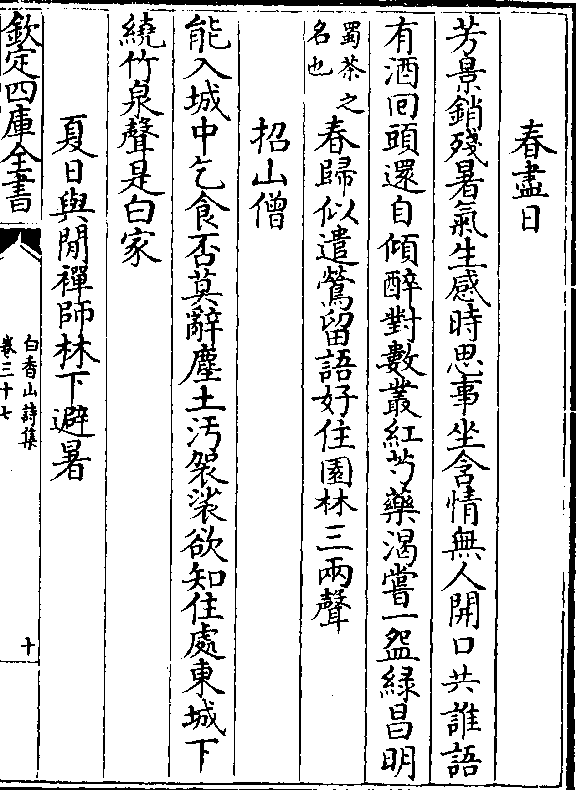 春盡日
芳景銷殘暑氣生感時思事坐含情無人開口共誰語
有酒回頭還自傾醉對數叢紅芍藥渴嘗一盌緑昌明
蜀茶之名也
春歸似遣鶯留語好住園林三兩聲
招山僧
能入城中乞食否莫辭塵土汚袈裟欲知住處東城下
繞竹泉聲是白家
夏日與閒禪師林下避暑
欽定四庫全書
白香山詩集
卷三十七
十